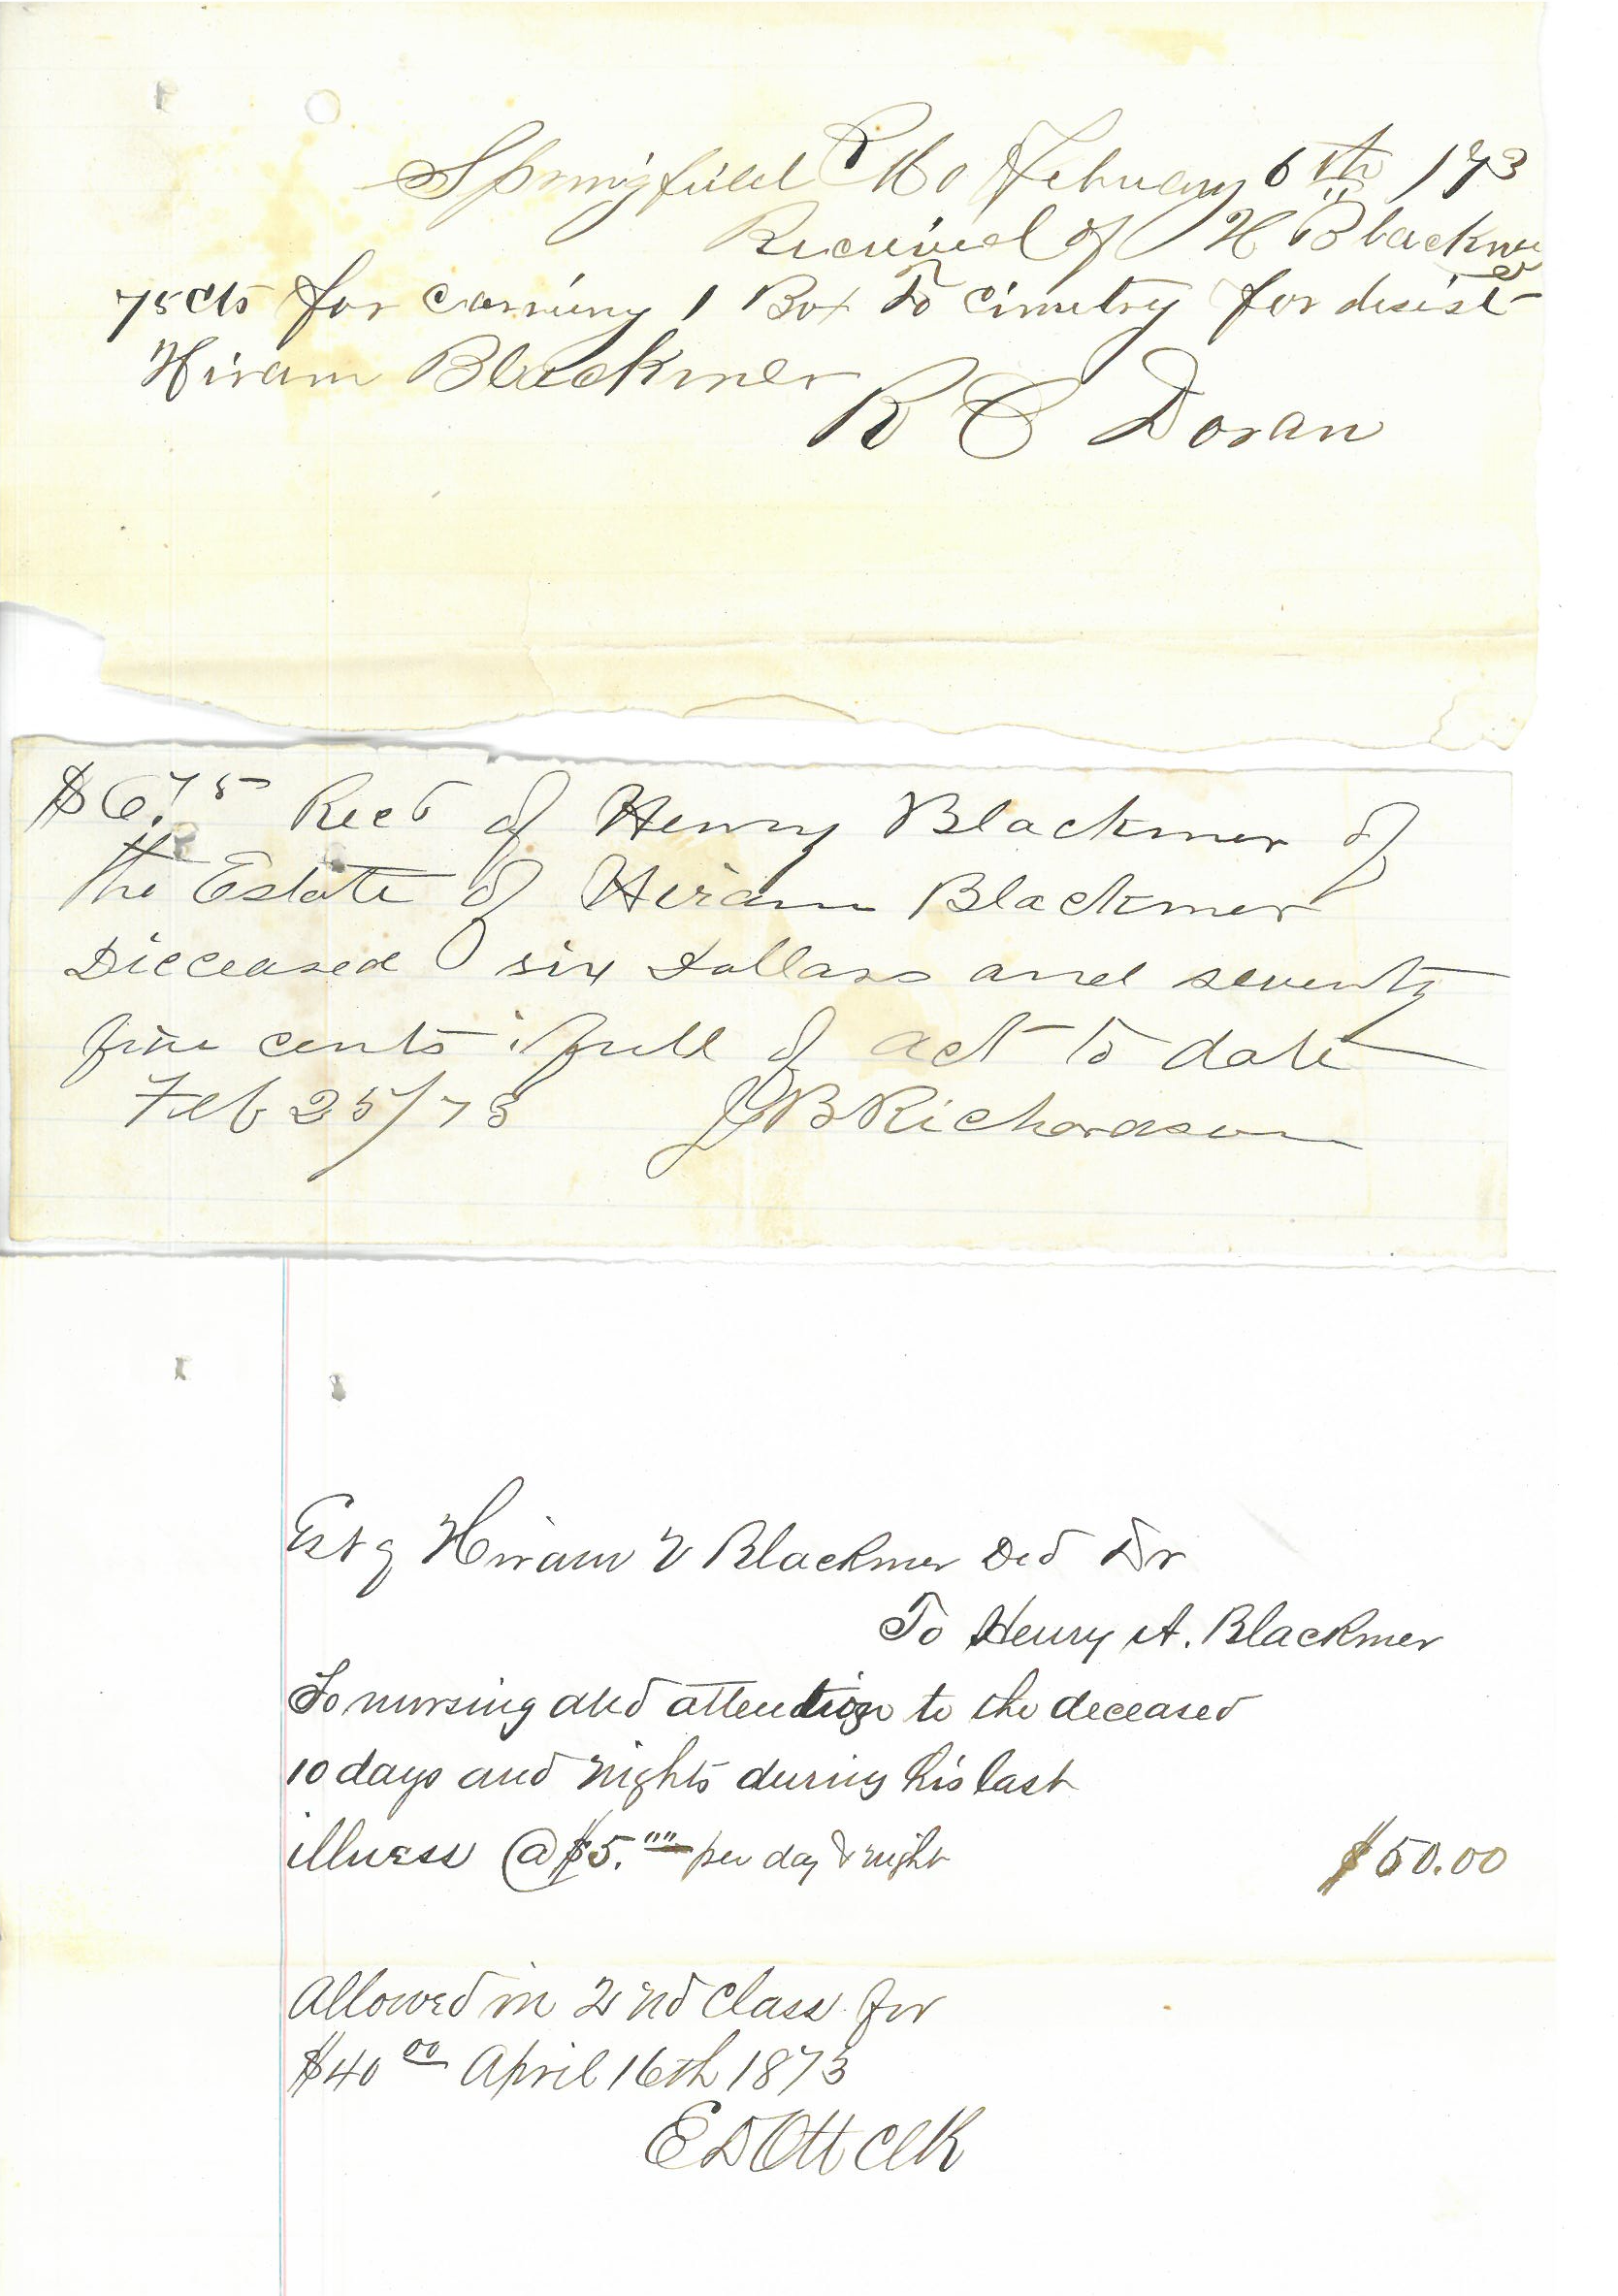 Springfield Mo February 6th 173
Received of H Blackmer
75cts for carriing 1 Box To cimetry for desist
Hiram Blackmer
R C Doran
$6.75 Recd of Henry Blackmer of
the Estate of Hiram Blackmer
Dicceased six dollars and seventy
five cents i full of act to date
Feb 25/73 J B Richardson
Est of Hiram V Blackmer Decd Dr
To Henry A. Blackmer
To nursing and attention to the deceased
10 days and nights during his last
illness @ $5.00 per day & night $50.00
Allowed in 2nd Class for
$40 00 April 16th 1873
E D Ott Clk